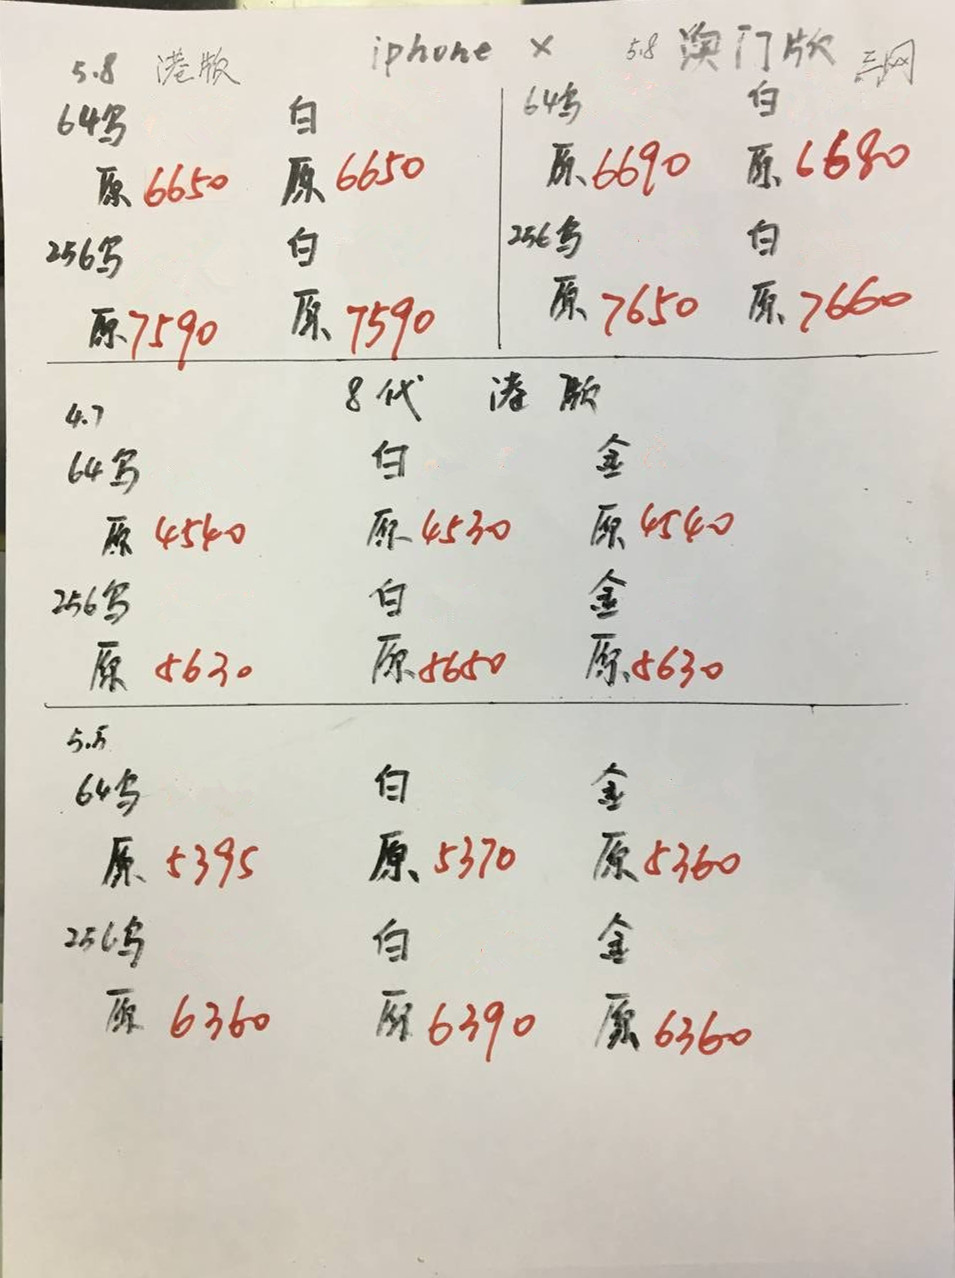 iphone X
5.8 港版
64乌 白
原 6650 原 6650
256乌 白
原 7590 原 7590
5.8 澳门版 三网
64乌 白
原 6690 原 6680
256乌 白
原 7650 原 7660
8代 港版
4.7
64乌 白 金
原 4540 原 4530 原 4540
256乌 白 金
原 5630 原 5650 原 5630
5.5
64乌 白 金
原 5395 原 5370 原 5360
256乌 白 金
原 6360 原 6390 原 6360